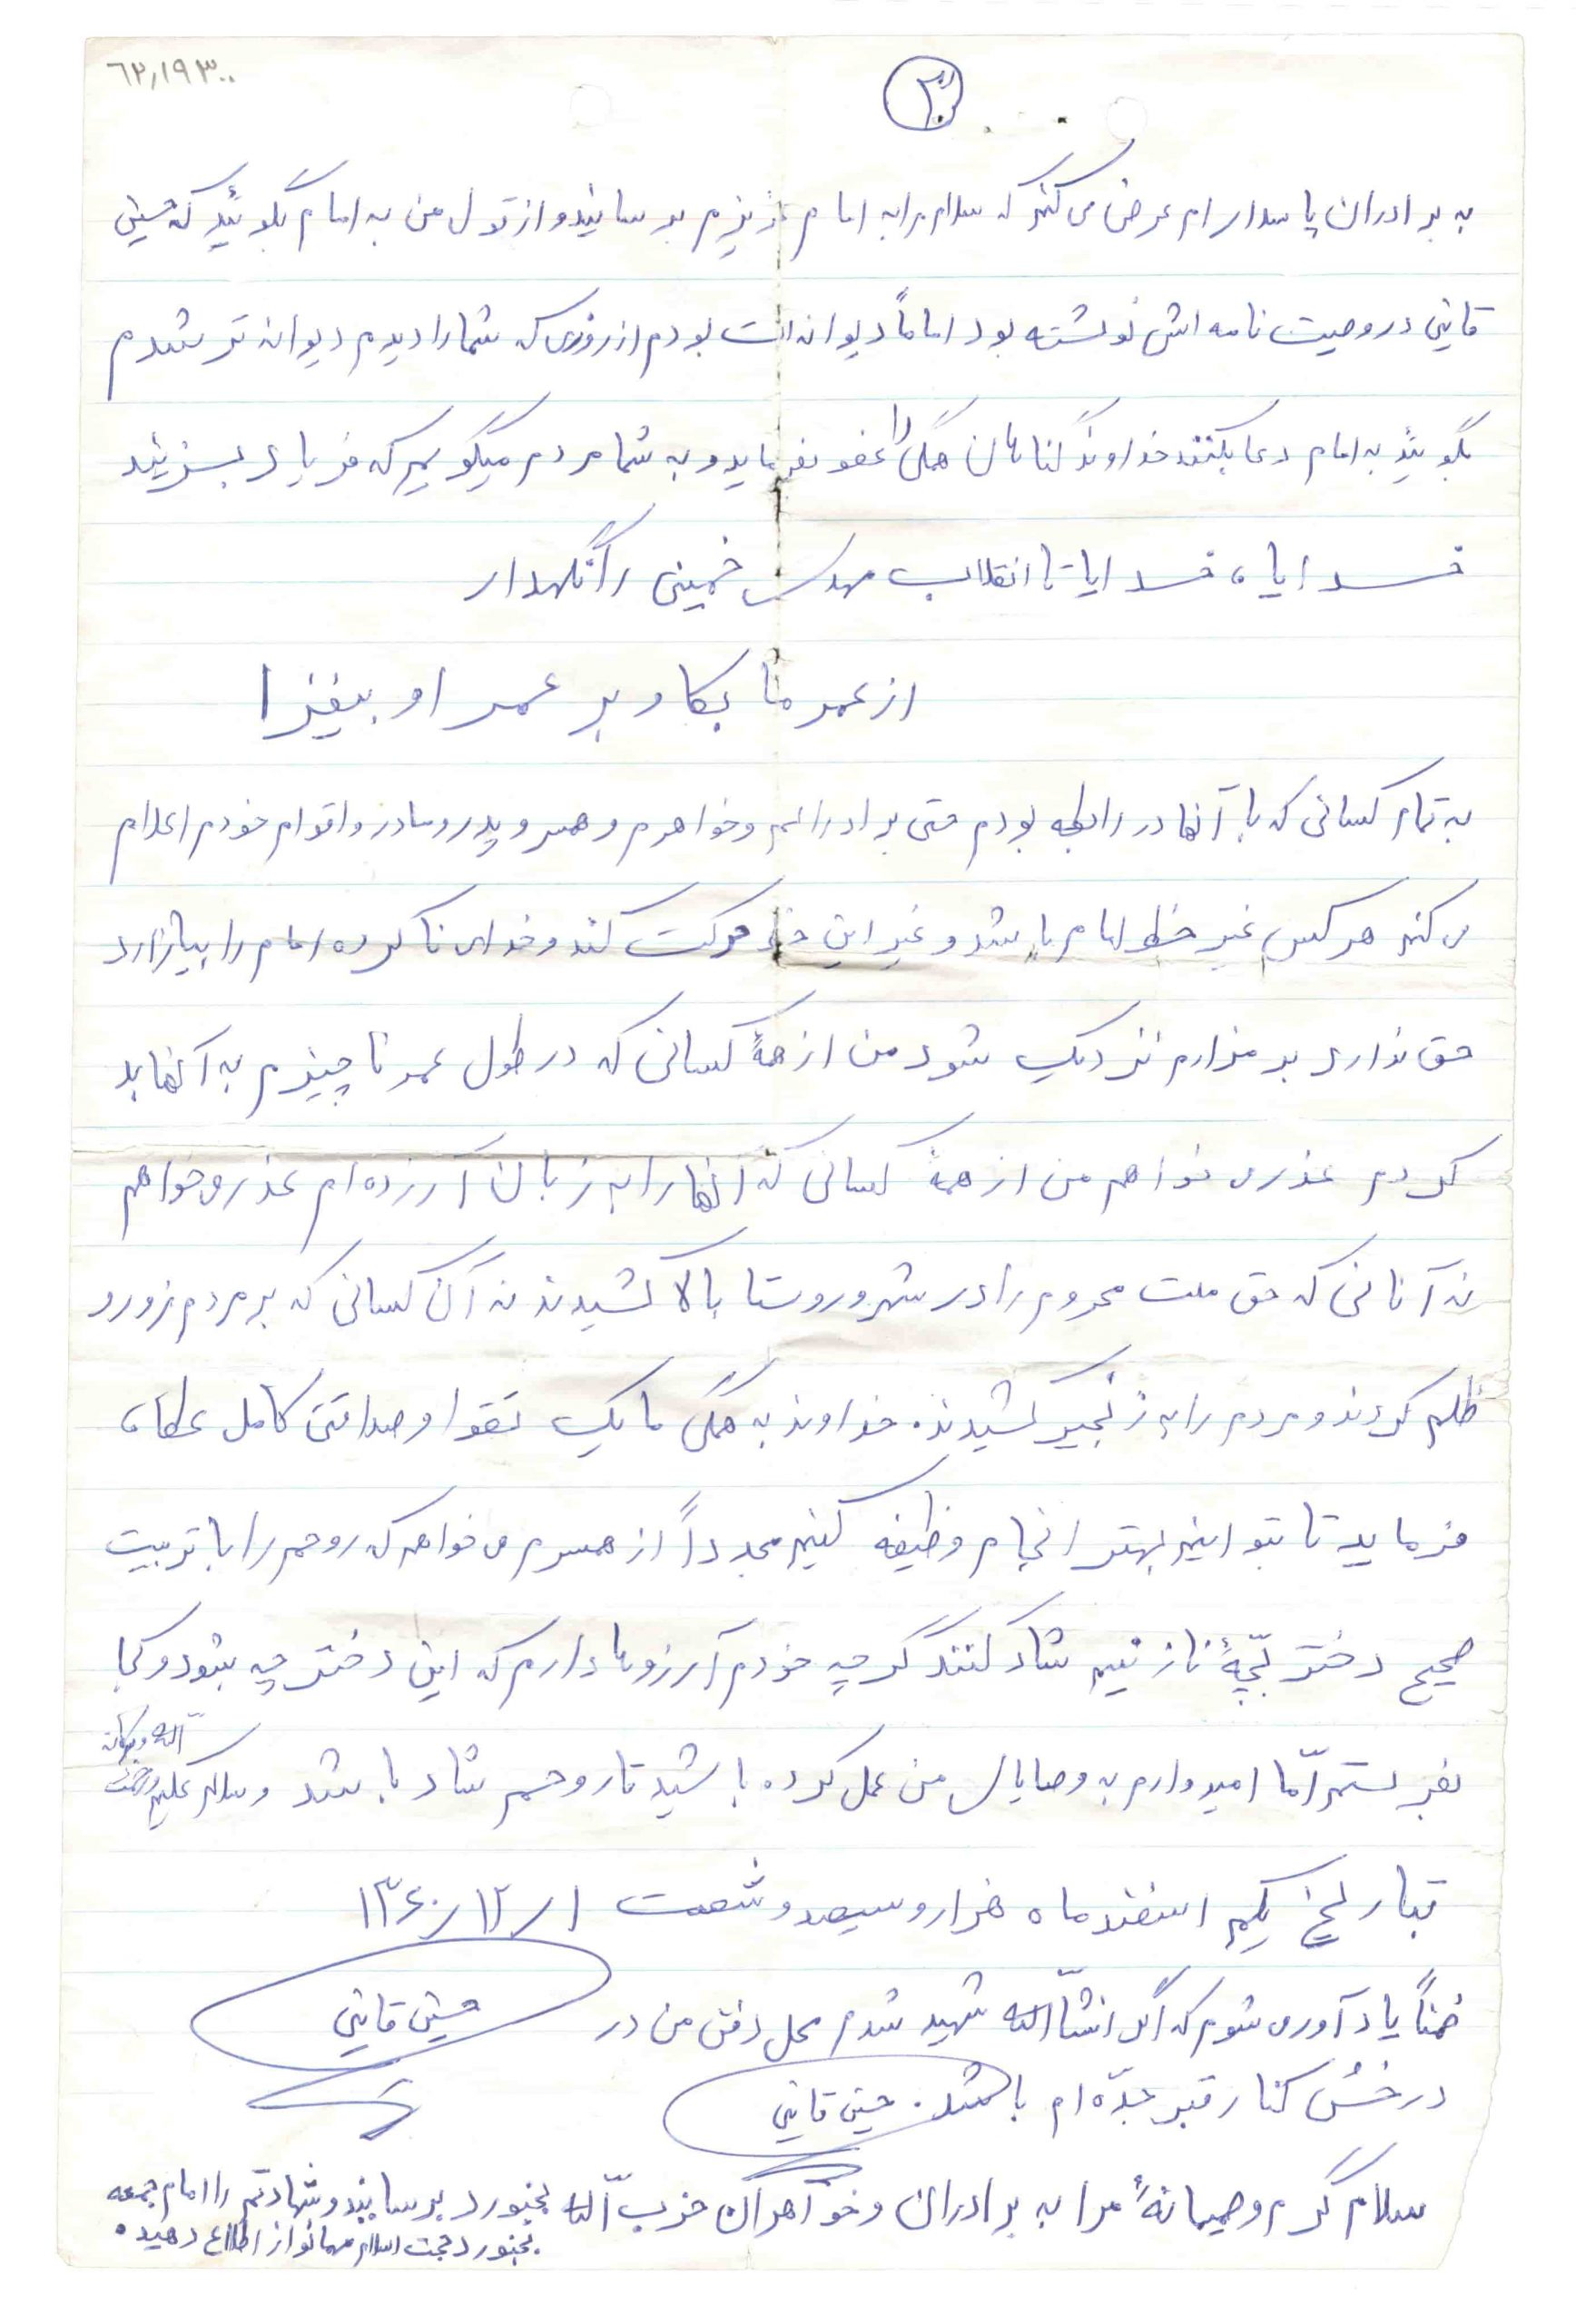 ۶۲٫۱۹۳۰۰
۳
به برادران پاسدارام عرض می کنم که سلام مرا به امام عزیزم برسانید و از قول من به امام بگوئید که حسین
قاینی در وصیت نامه اش نوشته بود اماماً دیوانه ات بودم از روزی که شما را دیدم دیوانه تر شدم
بگوئید به امام دعا بکنند خداوند گناهان همگی را عفو بفرماید و به شما مردم میگویم که فریاد بزنید
خدایا، خدایا تا انقلاب مهدی خمینی را نگهدار
از عمر ما بکاه و بر عمر او بیفزا
به تمام کسانی که با آنها در رابطه بودم حتی برادرانم و خواهرم و همسر و پدر و مادر و اقوام خودم اعلام
می کنم هر کس غیر خط امام باشد و غیر این خط حرکت کند و خدای ناکرده امام را بیازارد
حق ندارد بر مزارم نزدیک شود من از همهٔ کسانی که در طول عمر ناچیزم به آنها بد
کردم عذر می خواهم من از همهٔ کسانی که آنها را به زبان آزرده ام عذر می خواهم
نه آنانی که حق ملت محروم را در شهر و روستا بالا کشیدند نه آن کسانی که بر مردم زور و
ظلم کردند و مردم را به زنجیر کشیدند. خداوند به همگی ما یک تقوا و صداقتی کامل عطاء
فرماید تا بتوانیم بهتر انجام وظیفه کنیم مجدداً از همسرم می خواهم که روحم را با تربیت
صحیح دختر بچّهٔ نازنینم شاد کنند گرچه خودم آرزوها دارم که این دختر چه بشود و کجا
بفرستم امّا امیدوارم به وصایای من عمل کرده باشید تا روحم شاد باشد و سلام علیکم و رحمت
اللّه و برکاته
بتاریخ یکم اسفند ماه هزار و سیصد و شصت ۱۳۶۰٫۱۲٫۱
ضمناً یادآوری شوم که اگر انشاّالله شهید شدم محل دفن من در
حسین قاینی
در خُش کنار قبر جدّه ام باشد. حسین قاینی
سلام گرم و صمیمانهٔ مرا به برادران و خواهران حزب اللّه بجنورد برسانید و شهادتم را امام جمعه
بجنورد حجت اسلام مهمانواز اطلاع دهید.